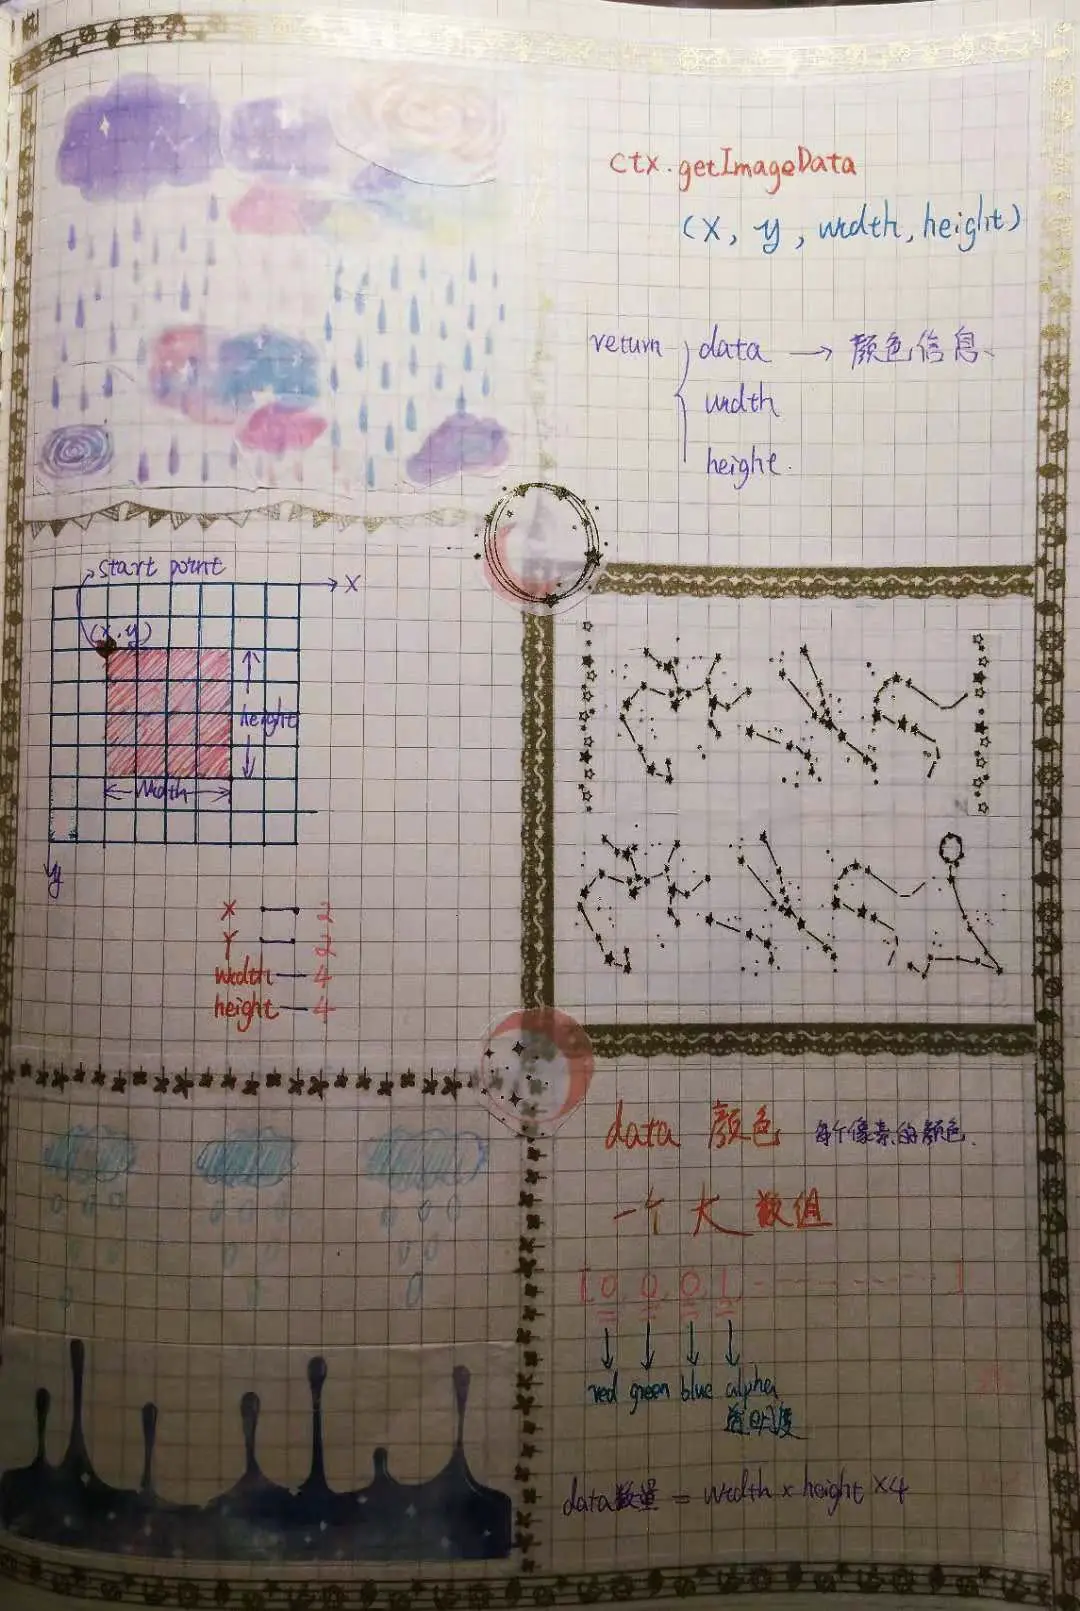 ctx.getImageData
(x, y, width, height)
return { data → 颜色信息、
width
height.
start point
x
(x.y)
height
width
y
X — 2
Y — 2
width — 4
height — 4
data 颜色 每个像素的颜色、
一个大数组
[ 0 0 0 1 - - - - - - - - ]
red green blue alpha
透明度
data数量 = width × height ×4